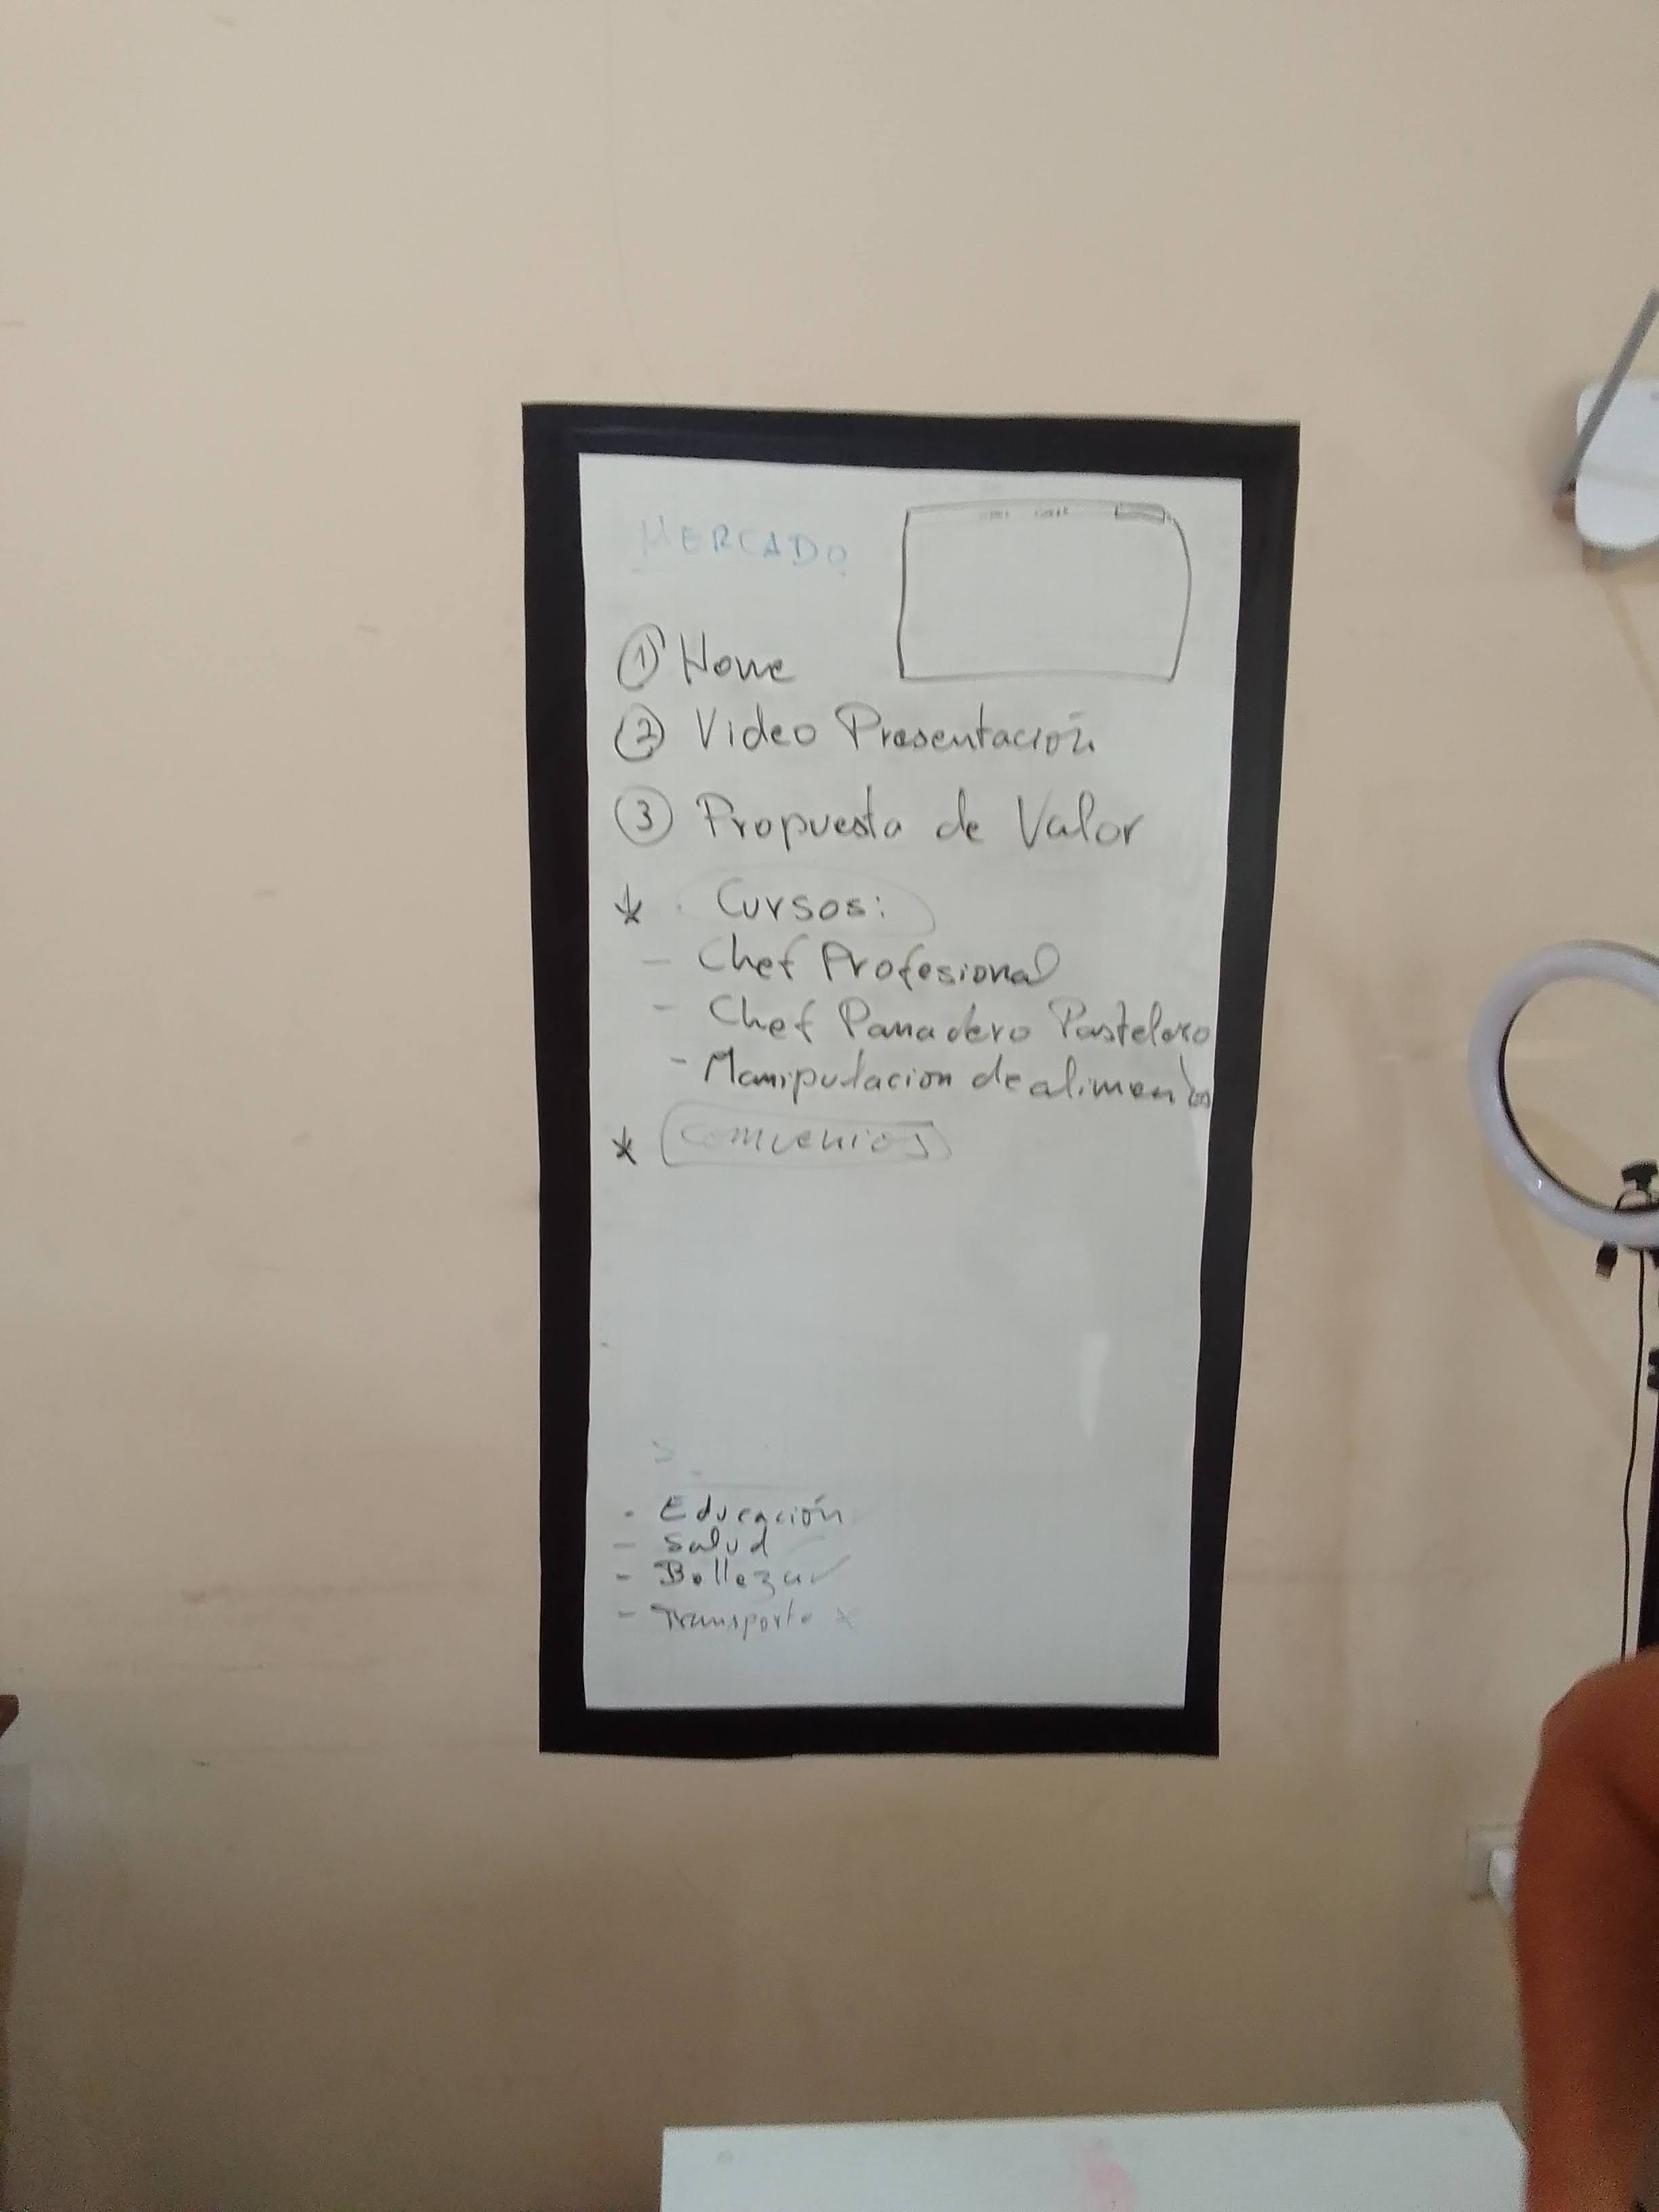 MERCADO
① Home
② Video Presentación
③ Propuesta de Valor
* Cursos:
- Chef Profesional
- Chef Panadero Pastelero
- Manipulacion de alimentos
* Convenios
- Educación
- Salud
- Belleza ✓
- Transporte x